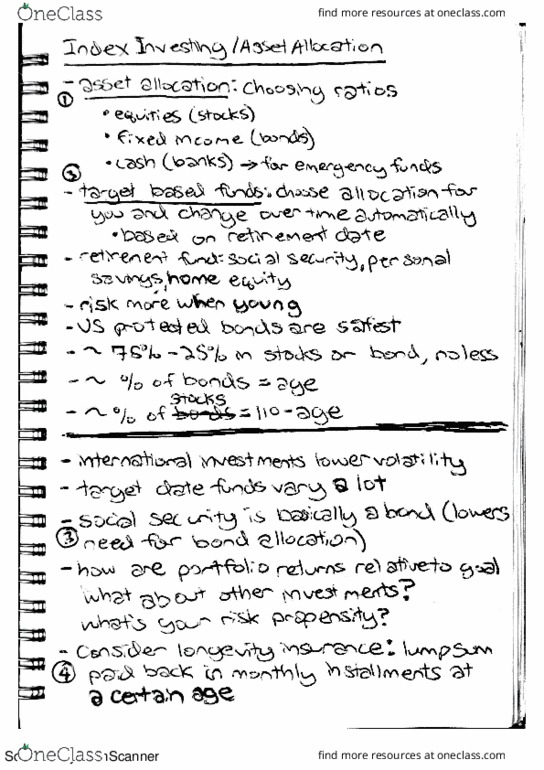 OneClass
find more resources at oneclass.com
Index Investing/Asset Allocation
- asset allocation: choosing ratios
①
• equities (stocks)
• fixed income (bonds)
• cash (banks) → for emergency funds
②
- target based funds: choose allocation for
you and change over time automatically
• based on retirement date
- retirement fund: social security, personal
savings, home equity
- risk more when young
- US protected bonds are safest
- ~ 75% - 25% in stocks or bond, no less
- ~ % of bonds = age
stocks
- ~ % of bonds = 110 - age
- international investments lower volatility
- target date funds vary a lot
- social security is basically a bond (lowers
③ need for bond allocation)
- how are portfolio returns relative to goal
what about other investments?
what's your risk propensity?
- Consider longevity insurance: lump sum
④ paid back in monthly installments at
a certain age
OneClass
Scanner
find more resources at oneclass.com